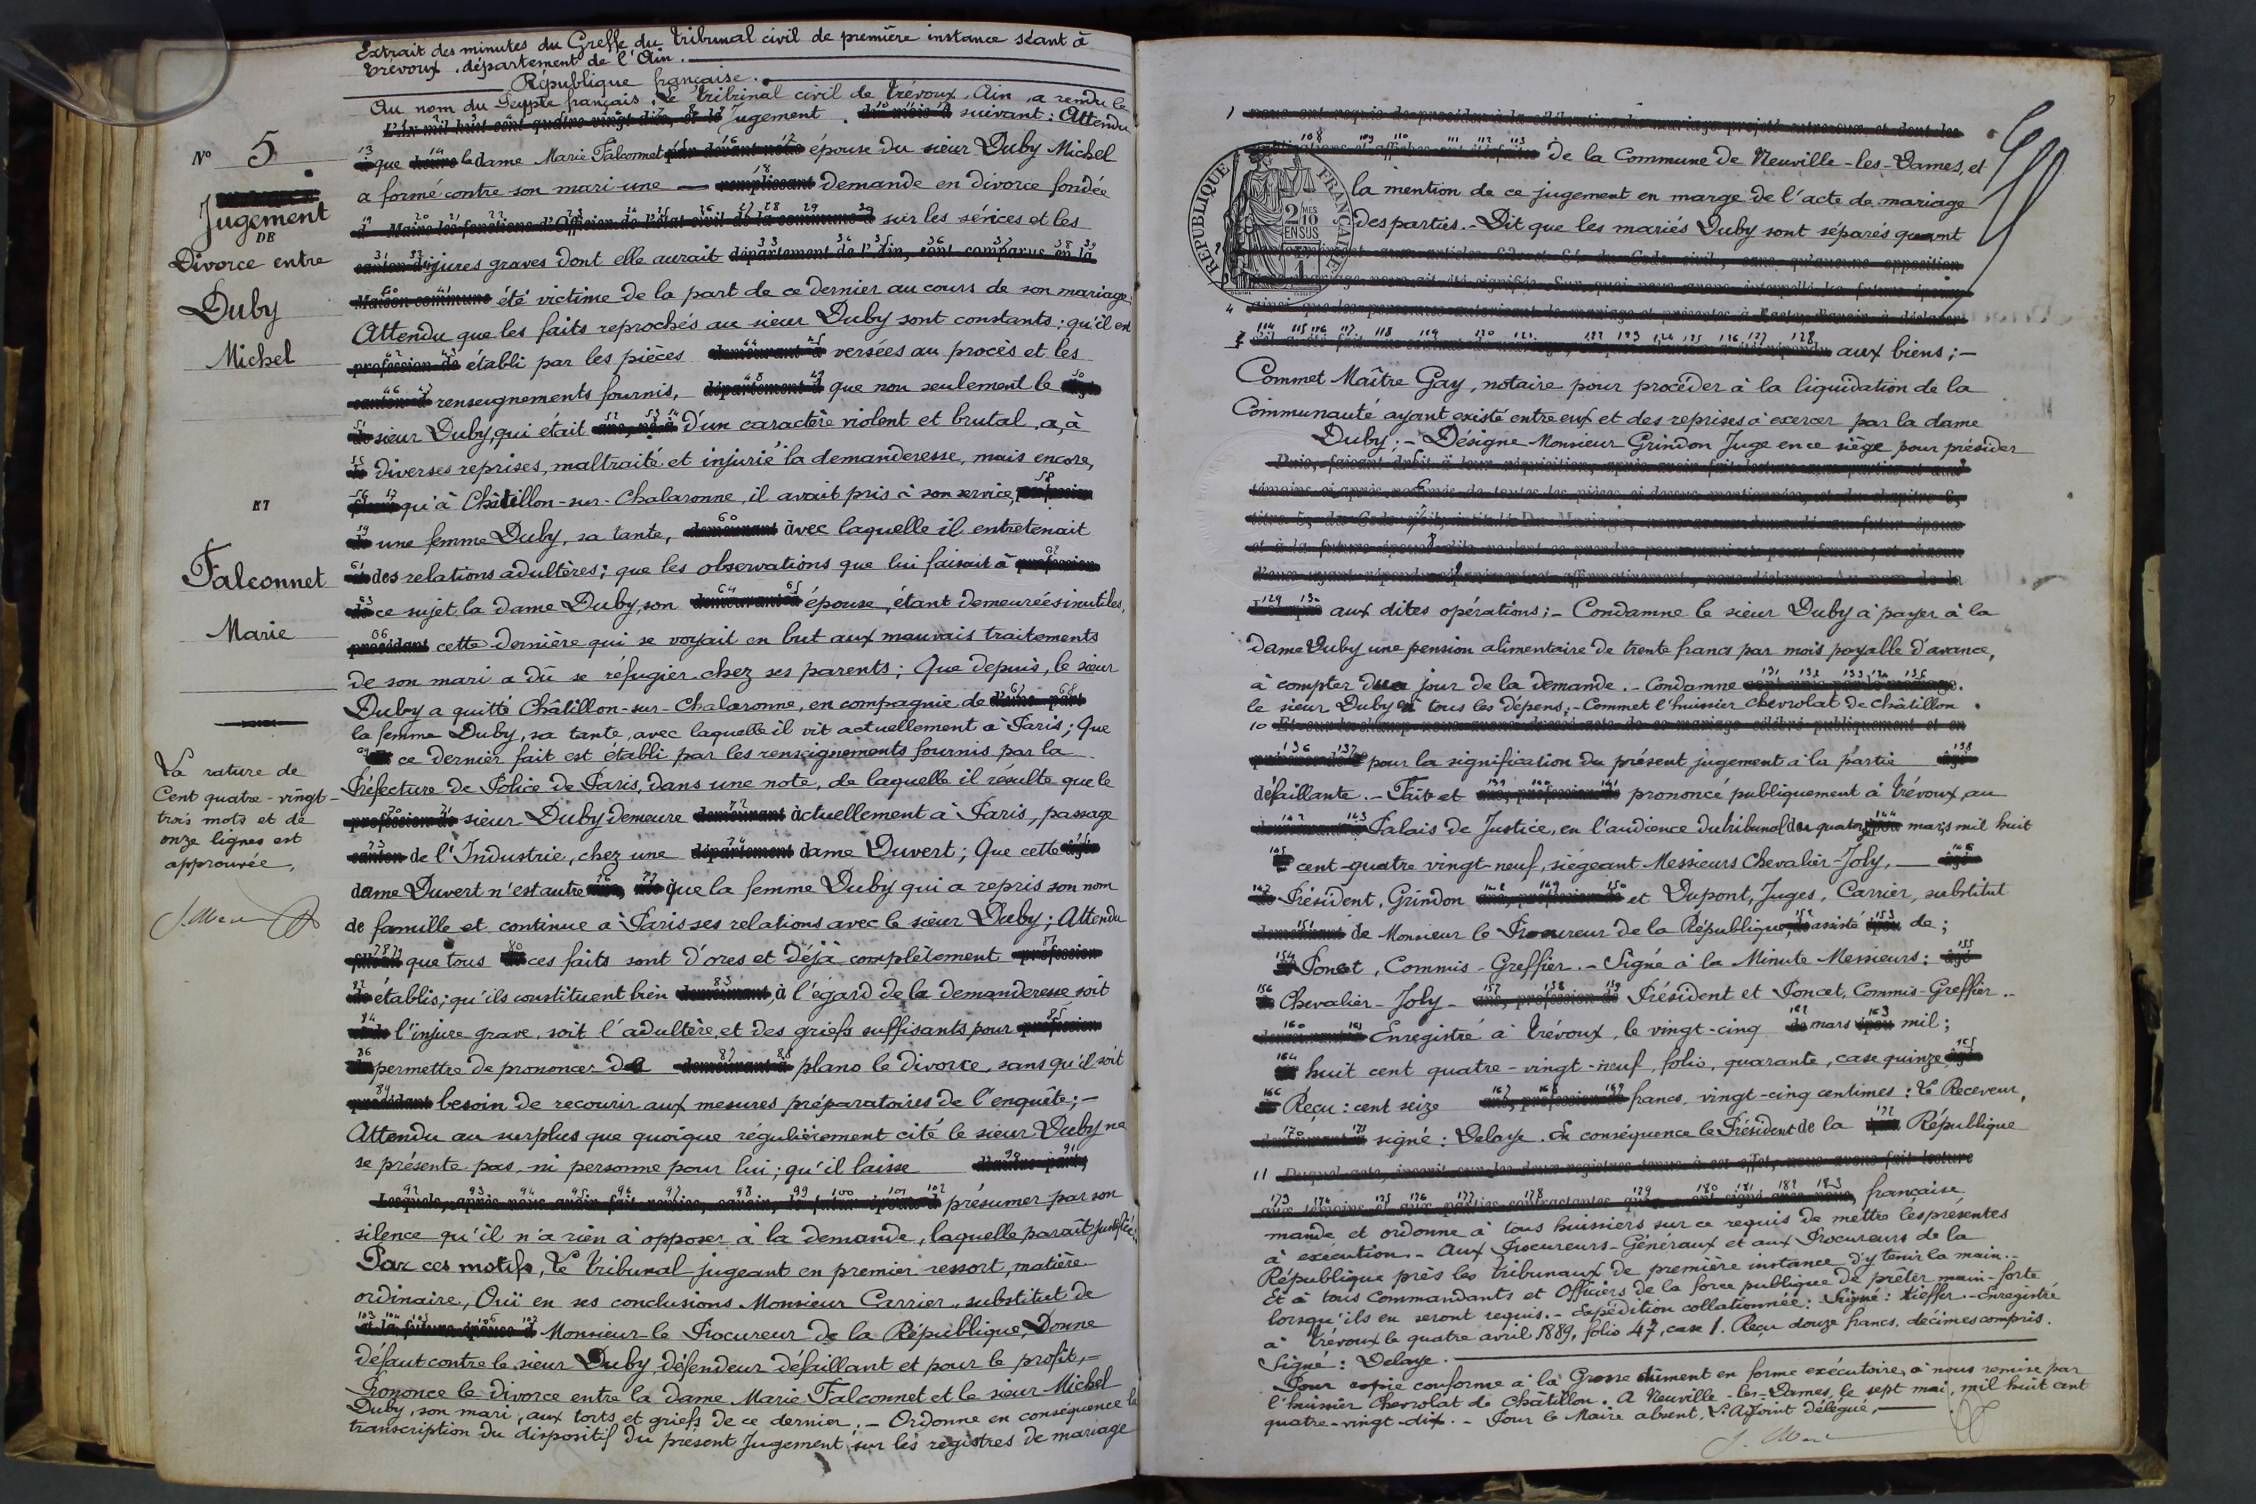 Extrait des minutes du Greffe du tribunal civil de première instance séant à
trévoux, département de l'Ain.
République française.
Au nom du Peuple français, Le tribunal civil de trévoux, Ain, a rendu le
jugement suivant : Attendu
N° 5
que la dame Marie Falconnet épouse du sieur Duby Michel
a formé contre son mari une demande en divorce fondée
Jugement
DE
Divorce entre
Duby
Michel
ET
Falconnet
Marie
sur les sévices et les
injures graves dont elle aurait
été victime de la part de ce dernier au cours de son mariage.
Attendu que les faits reprochés au sieur Duby sont constants ; qu'il est
établi par les pièces versées au procès et les
renseignements fournis, que non seulement le
sieur Duby, qui était d'un caractère violent et brutal, a, à
diverses reprises, maltraité et injurié la demanderesse, mais encore,
qu'à Châtillon-sur-Chalaronne, il avait pris à son service,
une femme Duby, sa tante, avec laquelle il entretenait
des relations adultères ; que les observations que lui faisait à
ce sujet la dame Duby, son épouse, étant demeurées inutiles,
cette dernière qui se voyait en but aux mauvais traitements
de son mari a dû se réfugier chez ses parents ; Que depuis, le sieur
Duby a quitté Châtillon-sur-Chalaronne, en compagnie de
la femme Duby, sa tante, avec laquelle il vit actuellement à Paris ; Que
ce dernier fait est établi par les renseignements fournis par la
Préfecture de Police de Paris, dans une note, de laquelle il résulte que le
sieur Duby demeure actuellement à Paris, passage
de l'Industrie, chez une dame Duvert ; Que cette
dame Duvert n'est autre que la femme Duby qui a repris son nom
de famille et continue à Paris ses relations avec le sieur Duby ; Attendu
que tous ces faits sont d'ores et déjà complètement
établis ; qu'ils constituent bien à l'égard de la demanderesse soit
l'injure grave, soit l'adultère, et des griefs suffisants pour
permettre de prononcer de plano le divorce, sans qu'il soit
besoin de recourir aux mesures préparatoires de l'enquête ; -
Attendu au surplus que quoique régulièrement cité le sieur Duby ne
se présente pas ni personne pour lui ; qu'il laisse
présumer par son
silence qu'il n'a rien à opposer à la demande, laquelle parait justifiée ;
Par ces motifs, Le tribunal jugeant en premier ressort, matière
ordinaire, Ouï en ses conclusions Monsieur Carrier, substitut de
Monsieur le Procureur de la République, Donne
défaut contre le sieur Duby, défendeur défaillant et pour le profit, -
Prononce le divorce entre la dame Marie Falconnet et le sieur Michel
Duby, son mari, aux torts et griefs de ce dernier. - Ordonne en conséquence la
transcription du dispositif du présent Jugement sur les registres de mariage
La rature de
Cent quatre-vingt-
trois mots et de
onze lignes est
approuvée,
de la Commune de Neuville-les-Dames, et
la mention de ce jugement en marge de l'acte de mariage
des parties. - Dit que les mariés Duby sont séparés quant
RÉPUBLIQUE FRANÇAISE
2 MES 10 EN SUS
aux biens ; -
Commet Maître Gay, notaire pour procéder à la liquidation de la
Communauté ayant existé entre eux et des reprises à exercer par la dame
Duby ; - Désigne Monsieur Grindon Juge en ce siège pour présider
aux dites opérations ; - Condamne le sieur Duby à payer à la
dame Duby une pension alimentaire de trente francs par mois payable d'avance,
à compter du jour de la demande. - Condamne
le sieur Duby à tous les dépens ; - Commet l'huissier Chevrolat de Châtillon
pour la signification du présent jugement à la partie
défaillante. - Fait et prononcé publiquement à trévoux, au
Palais de Justice, en l'audience du tribunal du quatorze mars mil huit
cent quatre vingt-neuf, siégeant Messieurs Chevalier-Joly,
Président, Grindon et Dupont, Juges, Carrier, substitut
de Monsieur le Procureur de la République, assisté de ;
Poncet, Commis-Greffier. - Signé à la Minute Messieurs :
Chevalier-Joly - Président et Poncet, Commis-Greffier. -
Enregistré à trévoux, le vingt-cinq mars mil ;
huit cent quatre-vingt-neuf, folio, quarante, case quinze,
Reçu : cent seize francs vingt-cinq centimes : Le Receveur,
signé : Delaye. En conséquence le Président de la République
française
mande et ordonne à tous huissiers sur ce requis de mettre les présentes
à exécution. - Aux Procureurs-Généraux et aux Procureurs de la
République près les tribunaux de première instance d'y tenir la main. -
Et à tous Commandants et Officiers de la force publique de prêter main-forte
lorsqu'ils en seront requis. - Expédition collationnée : Signé : Kieffer. - Enregistré
à trévoux le quatre avril 1889, folio 47, case 1. Reçu douze francs, décimes compris.
Signé : Delaye.
Pour copie conforme à la Grosse dûment en forme exécutoire, à nous remise par
l'huissier Chevrolat de Châtillon. A Neuville-les-Dames, le sept mai, mil huit cent
quatre-vingt-dix. - Pour le Maire absent, L'Adjoint délégué,